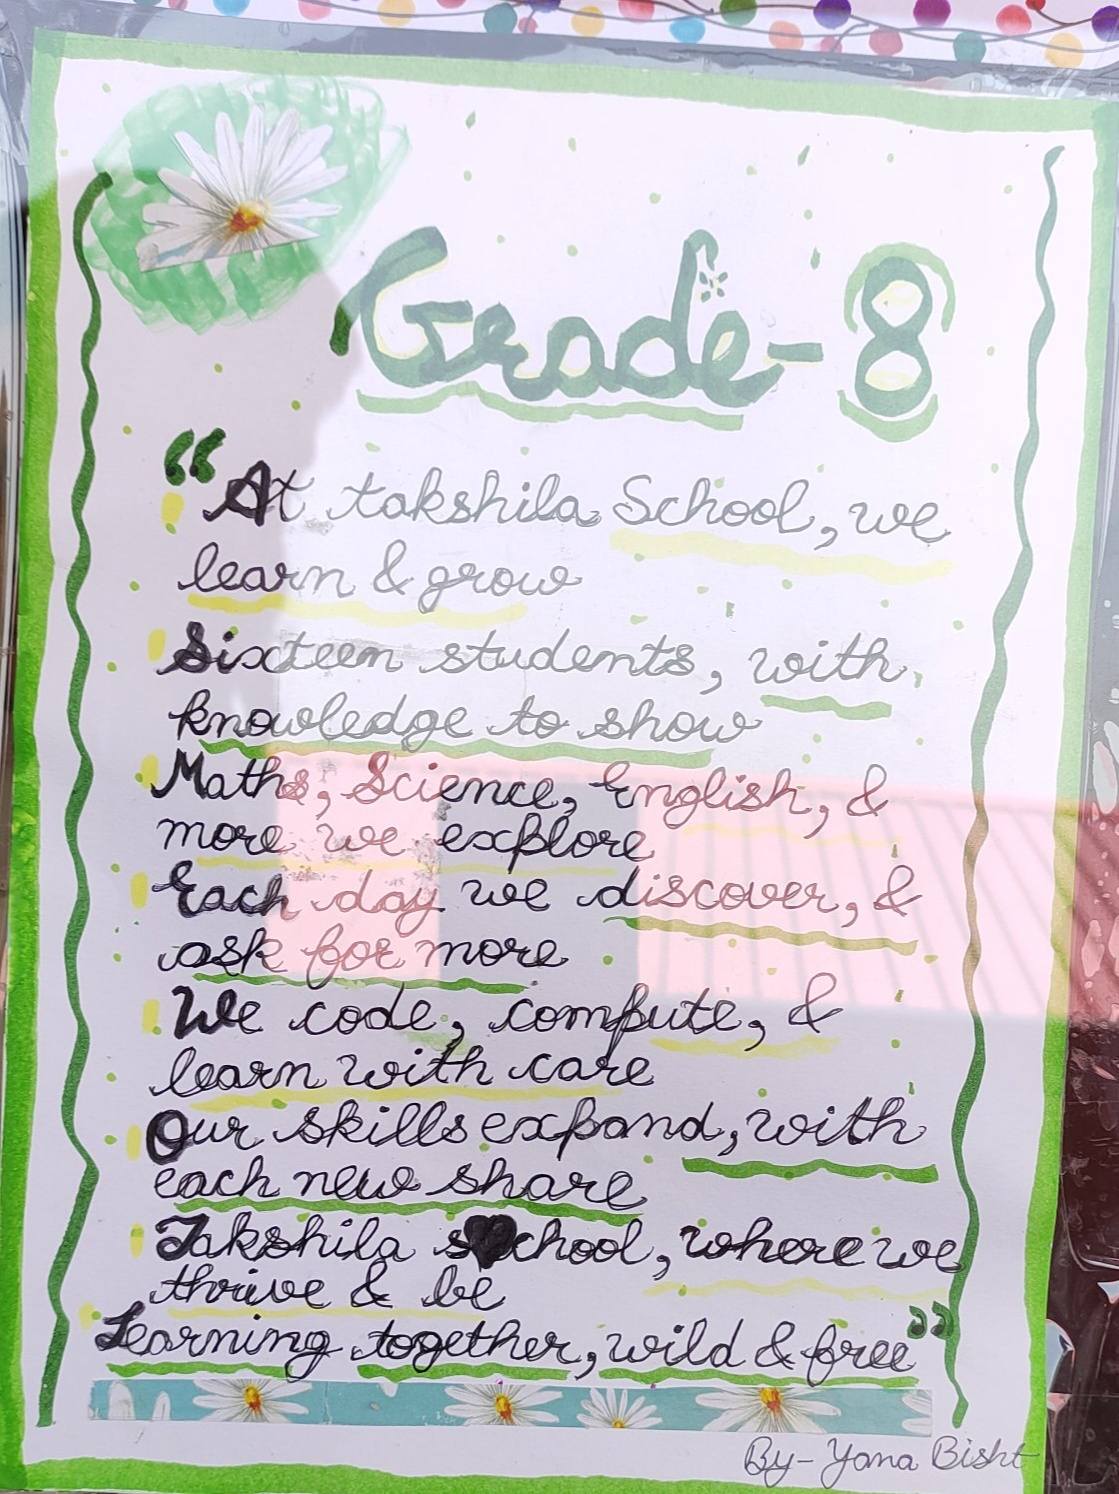 Grade-8
"At takshila School, we
learn & grow
Sixteen students, with
knowledge to show
Maths, Science, English, &
more we explore
Each day we discover, &
ask for more
We code, compute, &
learn with care
Our skills expand, with
each new share
Takshila school, where we
thrive & be
Learning together, wild & free"
By- Yama Bisht